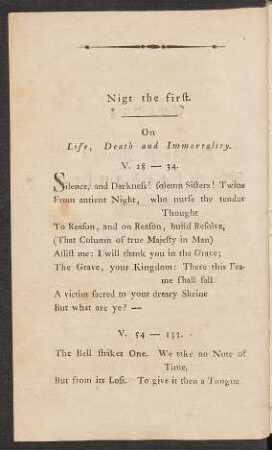 Nigt the first.
On
Life, Death and Immortality.
V. 28 — 34.
Silence, and Darkness! solemn Sisters! Twins
From antient Night, who nurse the tender
Thought
To Reason, and on Reason, build Resolve,
(That Column of true Majesty in Man)
Assist me: I will thank you in the Grave;
The Grave, your Kingdom: There this Fra-
me shall fall
A victim sacred to your dreary Shrine
But what are ye? —
V. 54 — 133.
The Bell strikes One. We take no Note of
Time,
But from its Loss. To give it then a Tongue